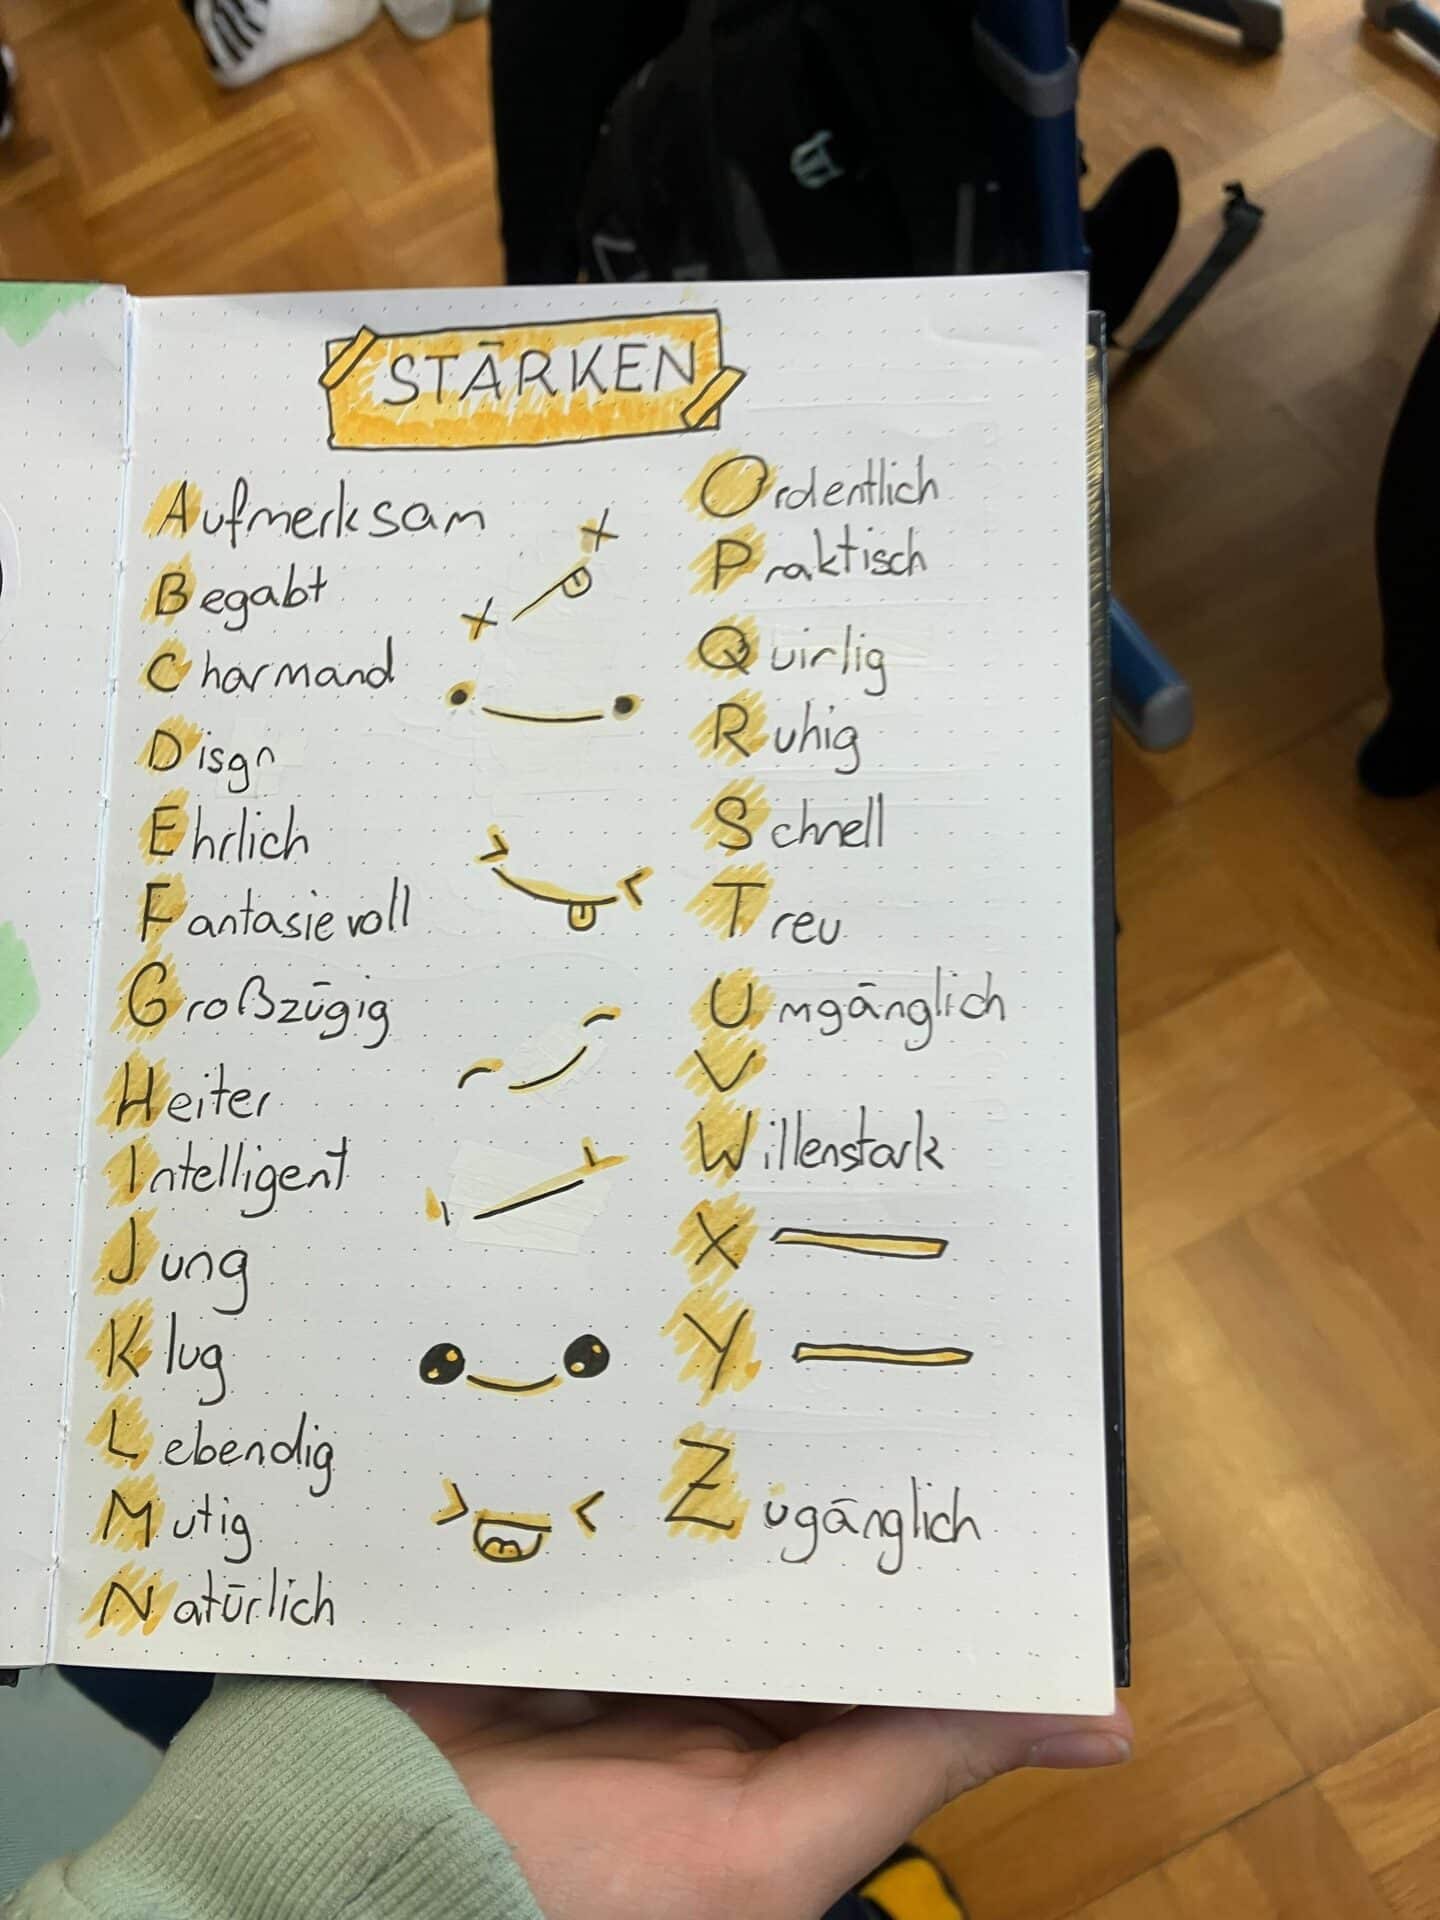 STÄRKEN
Aufmerksam
Begabt
Charmand
Disgn
Ehrlich
Fantasievoll
Großzügig
Heiter
Intelligent
Jung
Klug
Lebendig
Mutig
Natürlich
Ordentlich
Praktisch
Quirlig
Ruhig
Schnell
Treu
Umgänglich
V
Willenstark
X
Y
Zugänglich